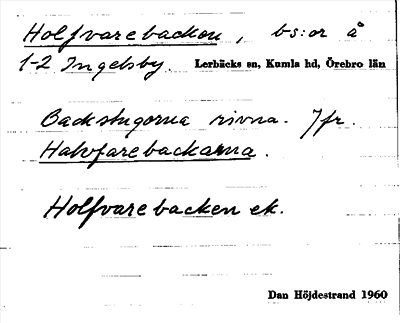 Holfvarebacken, bs:or å
1-2 Ingelsby. Lerbäcks sn, Kumla hd, Örebro län
Backstugorna rivna. Jfr.
Halvfarebackarna.
Holfvarebacken ek.
Dan Höjdestrand 1960